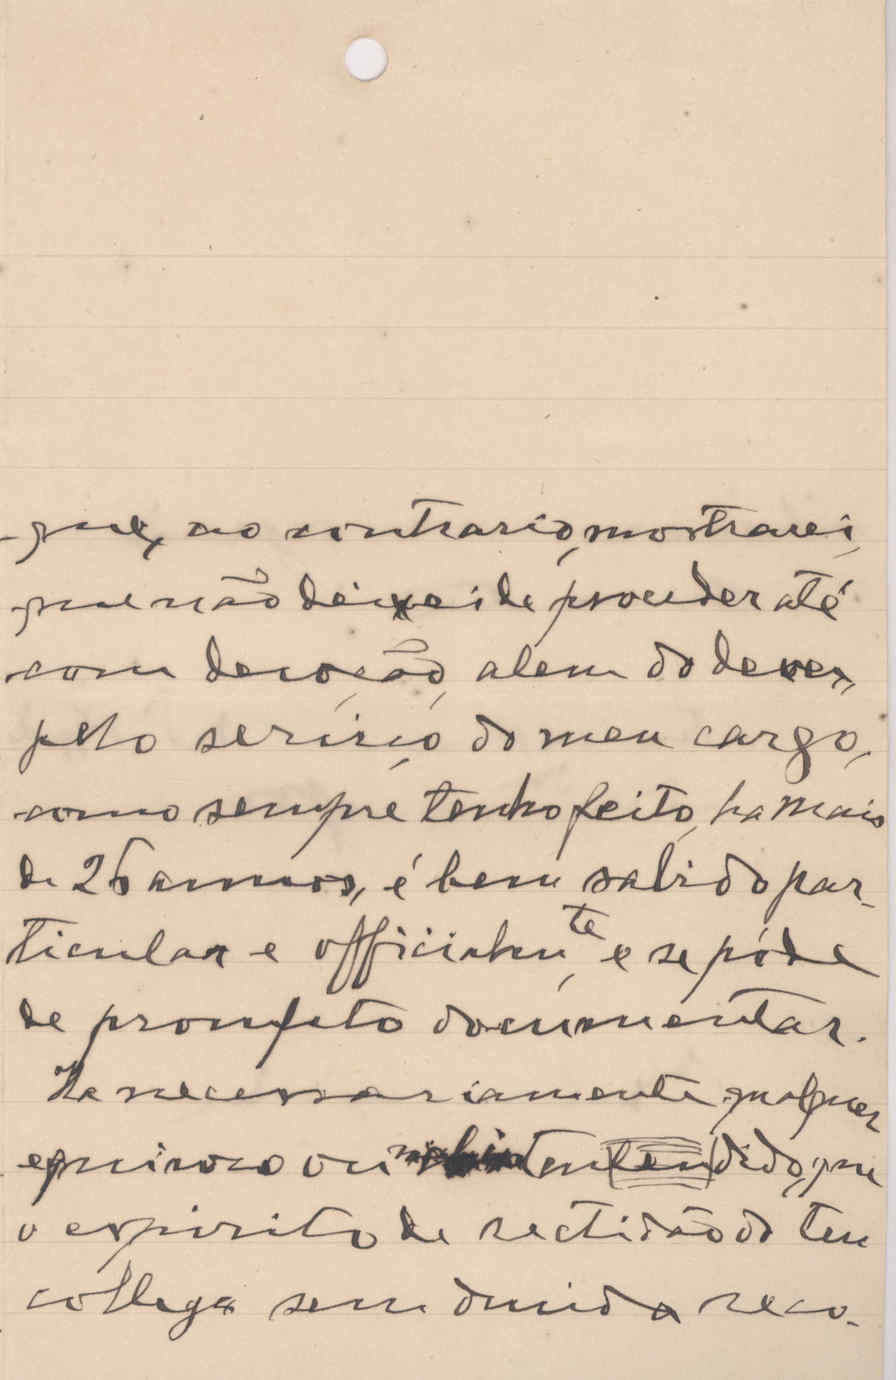 que, ao contrario, mostrarei,
que não deixei de proceder até
com devoção, alem do dever,
pelo serviço do meu cargo,
como sempre tenho feito, ha mais
de 26 annos, é bem sabido par-
ticular e officialmte, e se póde
de prompto documentar.
Ha necessariamente qualquer
equivoco ou mal entendido, que
o espirito de rectidão do teu
collega sem duvida reco-